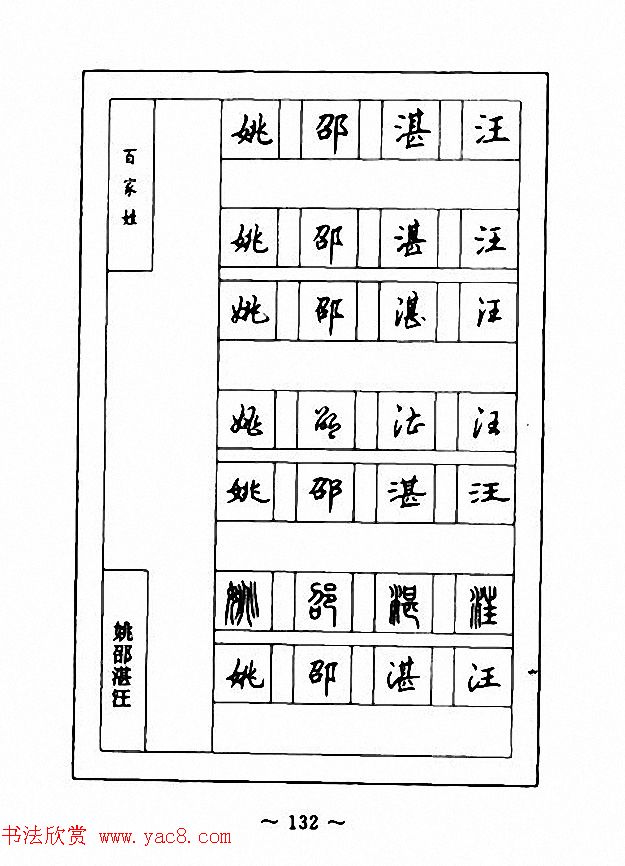 百家姓
姚 邵 湛 汪
姚 邵 湛 汪
姚 邵 湛 汪
姚 邵 湛 汪
姚 邵 湛 汪
姚 邵 湛 汪
姚 邵 湛 汪
姚邵湛汪
~ 132 ~
书法欣赏 www.yac8.com